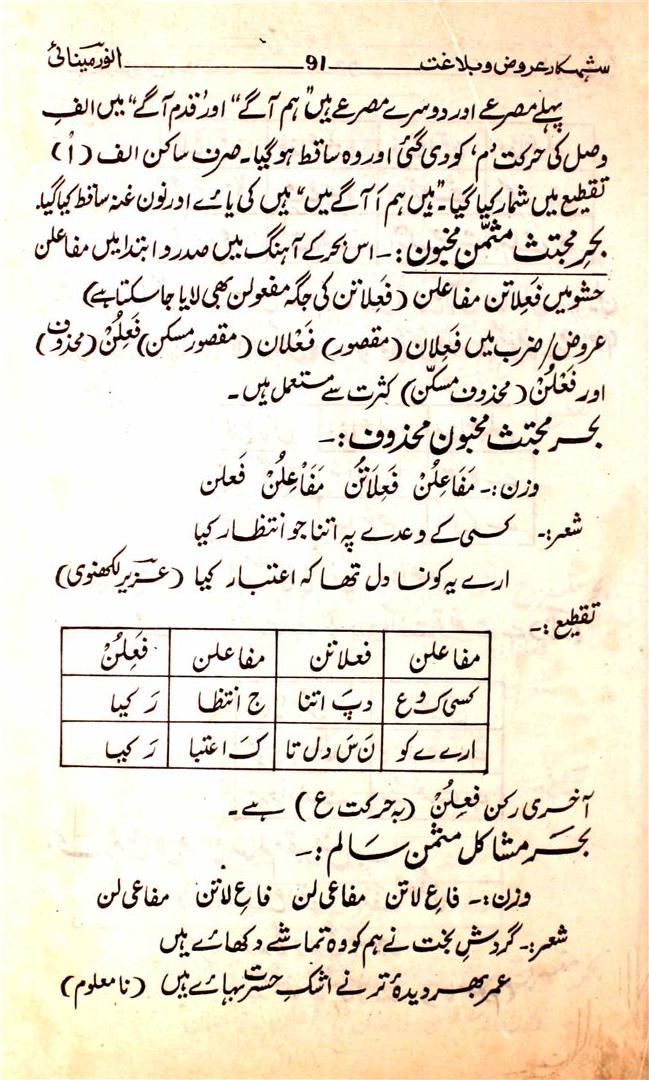 شہکار عروض و بلاغت 91 انور مینائی
پہلے مصرعے اور دوسرے مصرعے میں "ہم آگے" اور "قدم آگے" میں الفِ
وصل کی حرکت 'م' کو دی گئی اور وہ ساقط ہو گیا۔ صرف ساکن الف (اْ)
تقطیع میں شمار کیا گیا۔ "ہیں ہم اَ آگے میں" ہیں کی یائے اور نون غنہ ساقط کیا گیا۔
بحرِ مجتث مثمّن مخبون :- اس بحر کے آہنگ میں صدر و ابتدا میں مفاعلن
حشو میں فَعِلاتن مفاعلن (فَعِلاتن کی جگہ مفعولن بھی لایا جا سکتا ہے)
عروض/ضرب میں فَعِلان (مقصور) فَعْلان (مقصور مسکن) فَعِلُنْ (محذوف)
اور فَعْلُنْ (محذوف مسکّن) کثرت سے مستعمل ہیں۔
بحر مجتث مخبون محذوف :-
وزن :- مَفَاعِلُنْ فَعِلَاتُنْ مَفَاْعِلُنْ فَعلن
شعر :- کسی کے وعدے پہ اتنا جو انتظار کیا
ارے یہ کونسا دل تھا کہ اعتبار کیا (عزیز لکھنوی)
تقطیع :-
مفاعلن فعلاتن مفاعلن فَعِلُنْ
کسی ک وع دپَ اتنا ج انتظا رَ کیا
ارے ے کو نَ سَ دل تا کَ اعتبا رَ کیا
آخری رکن فَعِلُنْ (بہ حرکت ع) ہے۔
بحر مشاکل مثمن سالم :-
وزن :- فاعِ لاتن مفاعی لن فاعِ لاتن مفاعی لن
شعر :- گردشِ بخت نے ہم کو وہ تماشے دکھائے ہیں
عمر بھر دیدۂ تر نے اشکِ حسرت بہائے ہیں (نامعلوم)